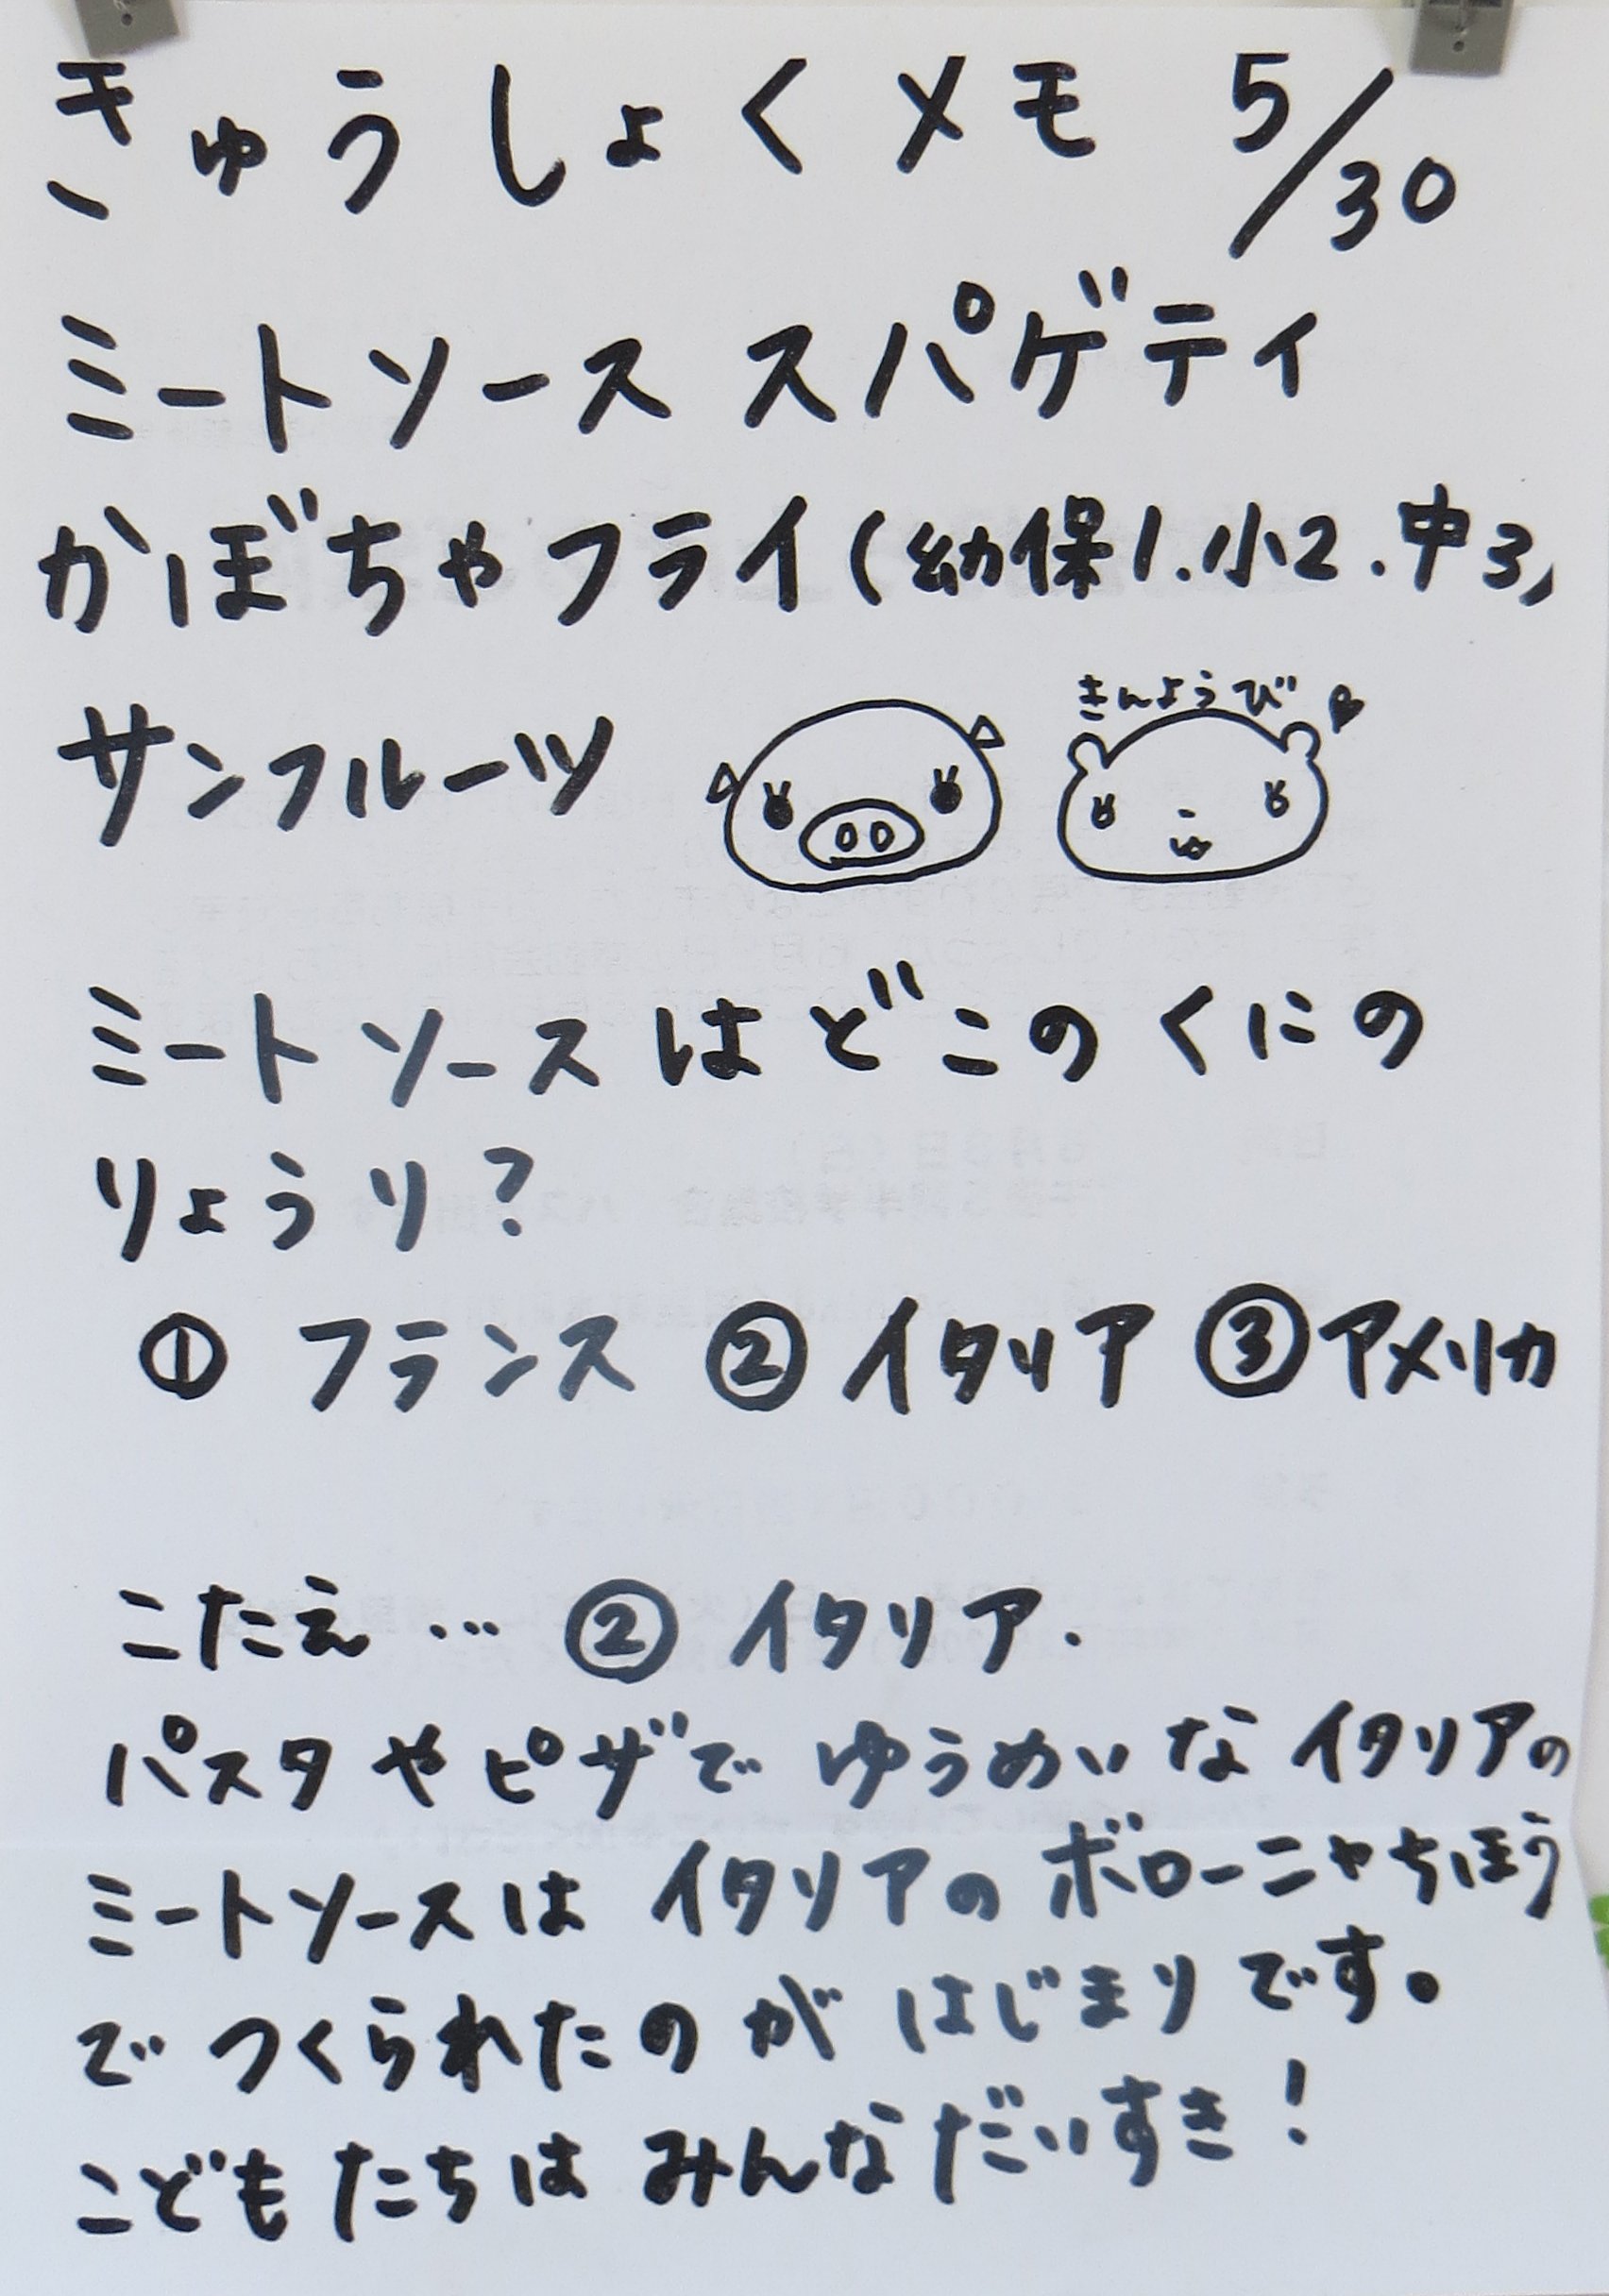 きゅうしょくメモ 5/30
ミートソース スパゲティ
かぼちゃフライ(幼保1.小2.中3)
サンフルーツ
きんようび
ミートソースはどこのくにの
りょうり?
① フランス ② イタリア ③アメリカ
こたえ… ② イタリア.
パスタやピザで ゆうめいな イタリアの
ミートソースは イタリアの ボローニャちほう
でつくられたのが はじまりです。
こどもたちは みんなだいすき!